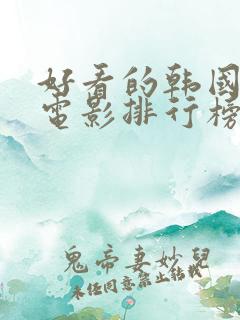 好看的韩國
电影排行榜
鬼帝妻妙兒
未经同意禁止转载